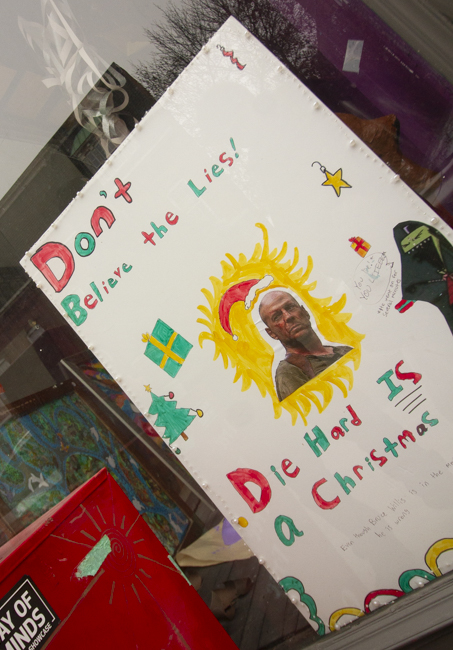 Don't
Believe the Lies!
Die Hard IS
a Christmas
AY OF
MINDS
SHOWCASE